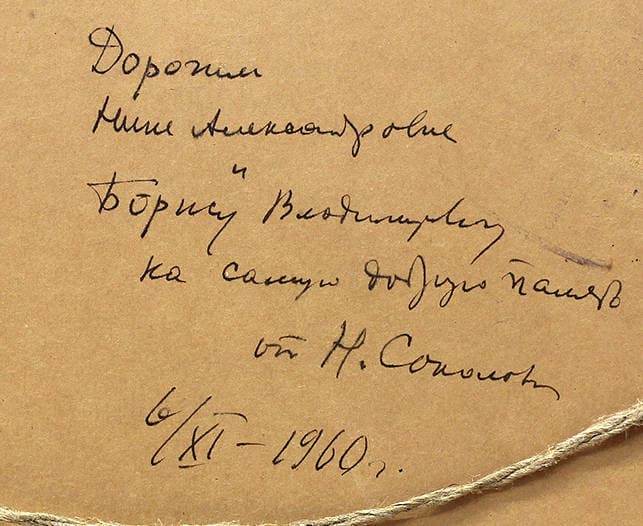 Дорогим
Нине Александровне
и
Борису Владимировичу
на самую добрую память
от Н. Соколова
6/XI – 1960 г.